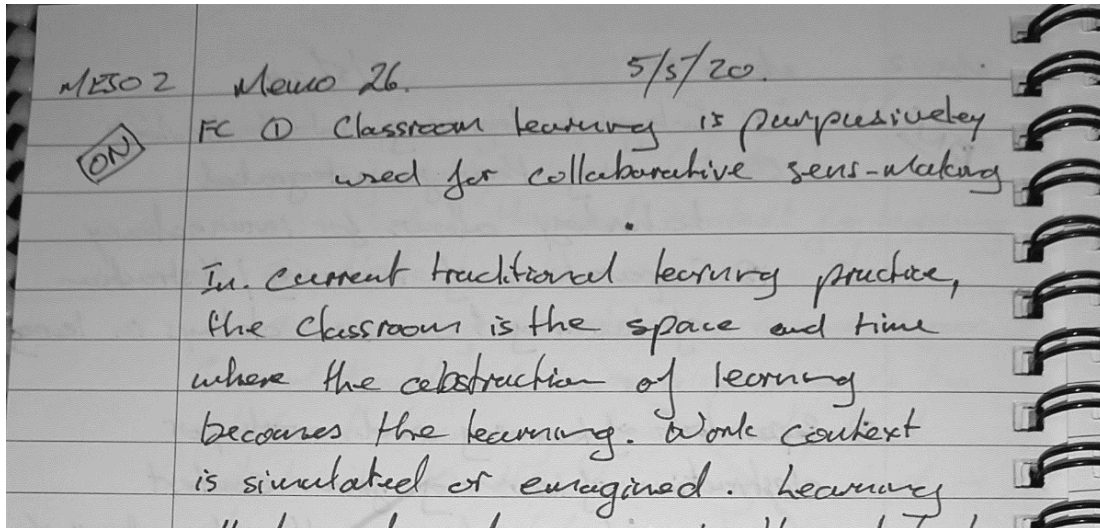 MESO 2 Memo 26. 5/5/20.
ON
FC ① Classroom learning is purpusiveley
used for collabarative sens-making
In. current traditional learning practice,
the classroom is the space and time
where the abstraction of learning
becomes the learning. Work context
is simulated or emagined. Learning